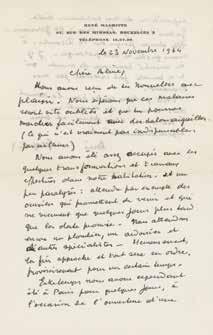 RENÉ MAGRITTE
97, RUE DES MIMOSAS, BRUXELLES 3
TÉLÉPHONE 15.07.30
le 23 Novembre 1964
Chère
Nous avons reçu de tes nouvelles avec
plaisir. Nous espérons que ces malaises
seront vite oubliés et que tu pourras
marcher facilement avec des talons aiguilles
(ce qui n'est vraiment pas indispensable
par ailleurs)
Nous avons été assez occupés avec les
quelques transformations et travaux
effectués dans notre habitation, et un
peu paralysés : attendre par exemple des
ouvriers qui promettent de venir et qui
ne viennent que quelques jours plus tard
que la date promise. Nous attendons
encore un plombier, un ardoisier et
d'autres spécialistes. Heureusement,
la fin approche et tout sera en ordre,
provisoirement pour un certain temps.
Entretemps nous avons cependant
été à Paris pour quelques jours, à
l'occasion de l'ouverture d'une